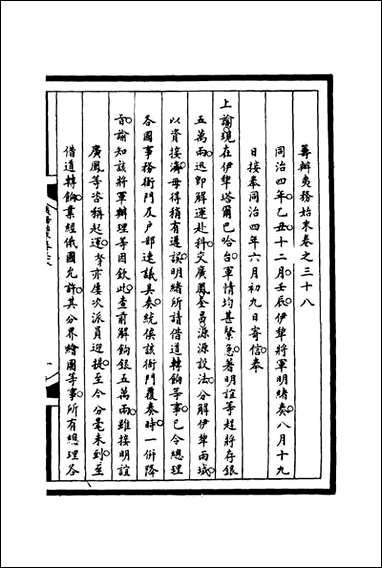 籌辦夷務始末卷之三十八
同治四年乙丑十二月壬辰伊犂將軍明緒奏八月十九
日接奉同治四年六月初九日寄信奉
上諭現在伊犂塔爾巴哈台軍情均甚緊急著明誼等趕將存銀
五萬兩迅即解運赴科交廣鳳奎昌源源設法分解伊犂兩城
以資接濟毋得稍有遲誤明緒所請借道轉餉等事已令總理
各國事務衙門及戶部速議具奏統俟該衙門覆奏時一併降
旨諭知該將軍辦理等因欽此查前解餉銀五萬兩雖接明誼
廣鳳等咨稱起運亦屢次派員迎提至今分毫未到至
借道轉餉業經俄國允許其分界繪圖等事所有總理各